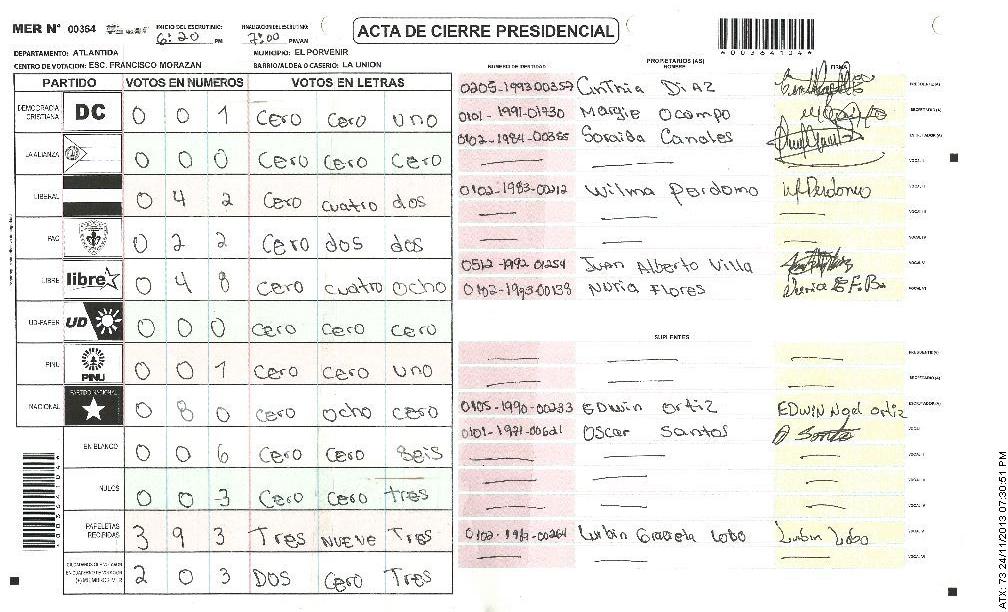 MER Nº 00364 INICIO DEL ESCRUTINIO: 6:20 PM FINALIZACION DEL ESCRUTINIO: 7:00 PM/AM
ACTA DE CIERRE PRESIDENCIAL
DEPARTAMENTO: ATLANTIDA MUNICIPIO: EL PORVENIR
CENTRO DE VOTACION: ESC. FRANCISCO MORAZAN BARRIO/ALDEA O CASERIO: LA UNION
PARTIDO VOTOS EN NUMEROS VOTOS EN LETRAS
DEMOCRACIA CRISTIANA DC 0 0 1 Cero Cero uno
LA ALIANZA 0 0 0 Cero Cero Cero
LIBERAL 0 4 2 Cero cuatro dos
PAC 0 2 2 Cero dos dos
LIBRE libre 0 4 8 Cero cuatro ocho
UD-FAPER UD 0 0 0 Cero Cero Cero
PINU PINU 0 0 1 Cero Cero uno
NACIONAL PARTIDO NACIONAL 0 8 0 Cero ocho cero
EN BLANCO 0 0 6 Cero Cero Seis
NULOS 0 0 3 Cero Cero tres
PAPELETAS RECIBIDAS 3 9 3 Tres nueve Tres
2 0 3 DOS Cero Tres
PROPIETARIOS (AS)
NUMERO DE IDENTIDAD NOMBRE FIRMA
0205-1993-00357 Cinthia Diaz PRESIDENTE(A)
0101-1991-01930 Margie Ocampo SECRETARIO(A)
0102-1984-00365 Soraida Canales ESCRUTADOR(A)
VOCAL I
0102-1983-00212 Wilma Perdomo W Perdomo VOCAL II
VOCAL III
VOCAL IV
0512-1992-01254 Juan Alberto Villa VOCAL V
0102-1993-00138 Nuria Flores VOCAL VI
SUPLENTES
PRESIDENTE(A)
SECRETARIO(A)
0105-1990-00233 EDwin ortiz EDWIN Noel ortiz ESCRUTADOR(A)
0101-1971-00621 Oscar Santos VOCAL I
VOCAL II
VOCAL III
VOCAL IV
Lurbin Graciela Lobo Lurbin Lobo VOCAL V
VOCAL VI
ATX: 73 24/11/2013 07:30:51 PM